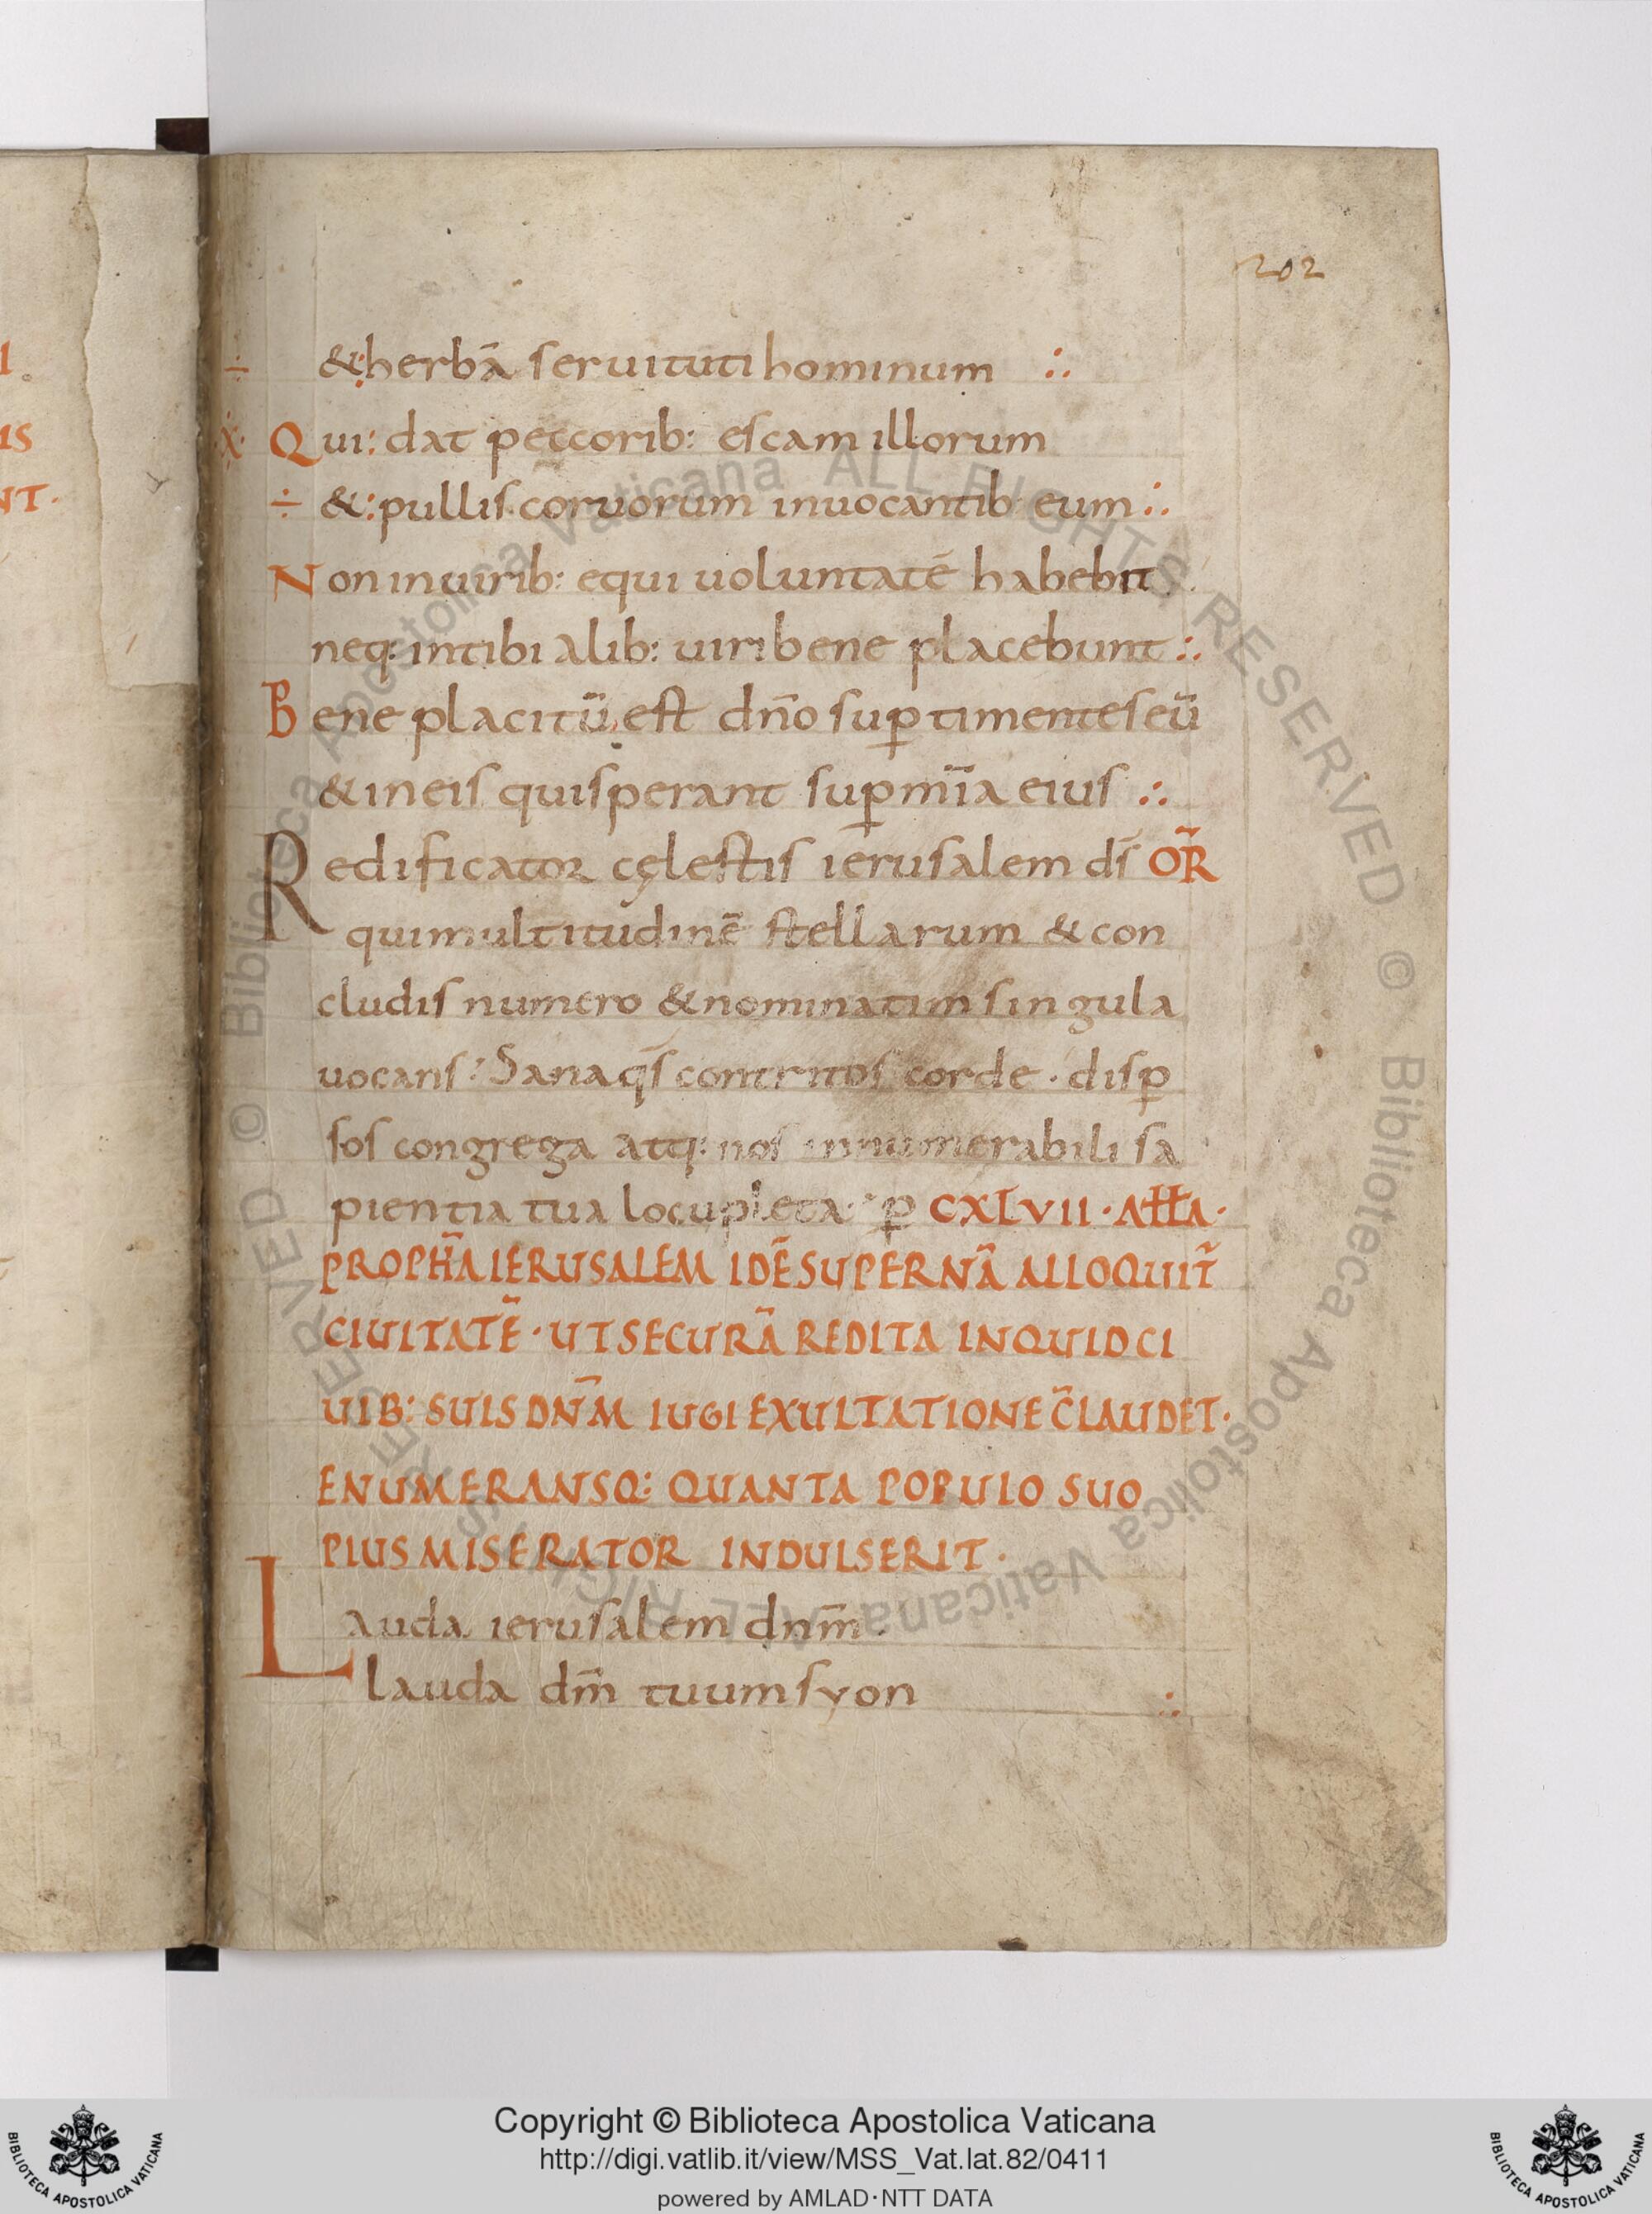 202
÷ &:herbā seruituti hominum ∴
※ Qui: dat peccorib: escam illorum
÷ &:pullis coruorum inuocantib eum ∴
Non inuirib: equi uoluntatē habebit
neq: intibialib: uiri bene placebunt ∴
Bene placitū est dn̄o sup timentes eū
& ineis qui sperant sup mīa eius ∴
Redificator cęlestis ierusalem ds̄ OR̄
qui multitudinē stellarum & con
cludis numero & nominatim singula
uocans: Sana qs̄ contritos corde · disp
sos congrega atq: nos innumerabili sa
pientia tua locupleta: p CXLVII · AŁŁA ·
PROPH̄A IERUSALEM IDĒ SUPERNĀ ALLOQUIT̄
CIUITATĒ · UT SECURĀ REDITA INQUID CI
UIB: SUIS DN̄M IUGI EXULTATIONE C̄LAUDET ·
ENUMERANSQ: QUANTA POPULO SUO
PIUS MISERATOR INDULSERIT ·
Lauda ierusalem dnm̄
lauda dm̄ tuum syon ∴
I
IS
NT.
© Biblioteca Apostolica Vaticana ALL RIGHTS RESERVED © Biblioteca Apostolica Vaticana ALL RIGHTS RESERVED
Copyright © Biblioteca Apostolica Vaticana
http://digi.vatlib.it/view/MSS_Vat.lat.82/0411
powered by AMLAD·NTT DATA
BIBLIOTECA APOSTOLICA VATICANA
BIBLIOTECA APOSTOLICA VATICANA